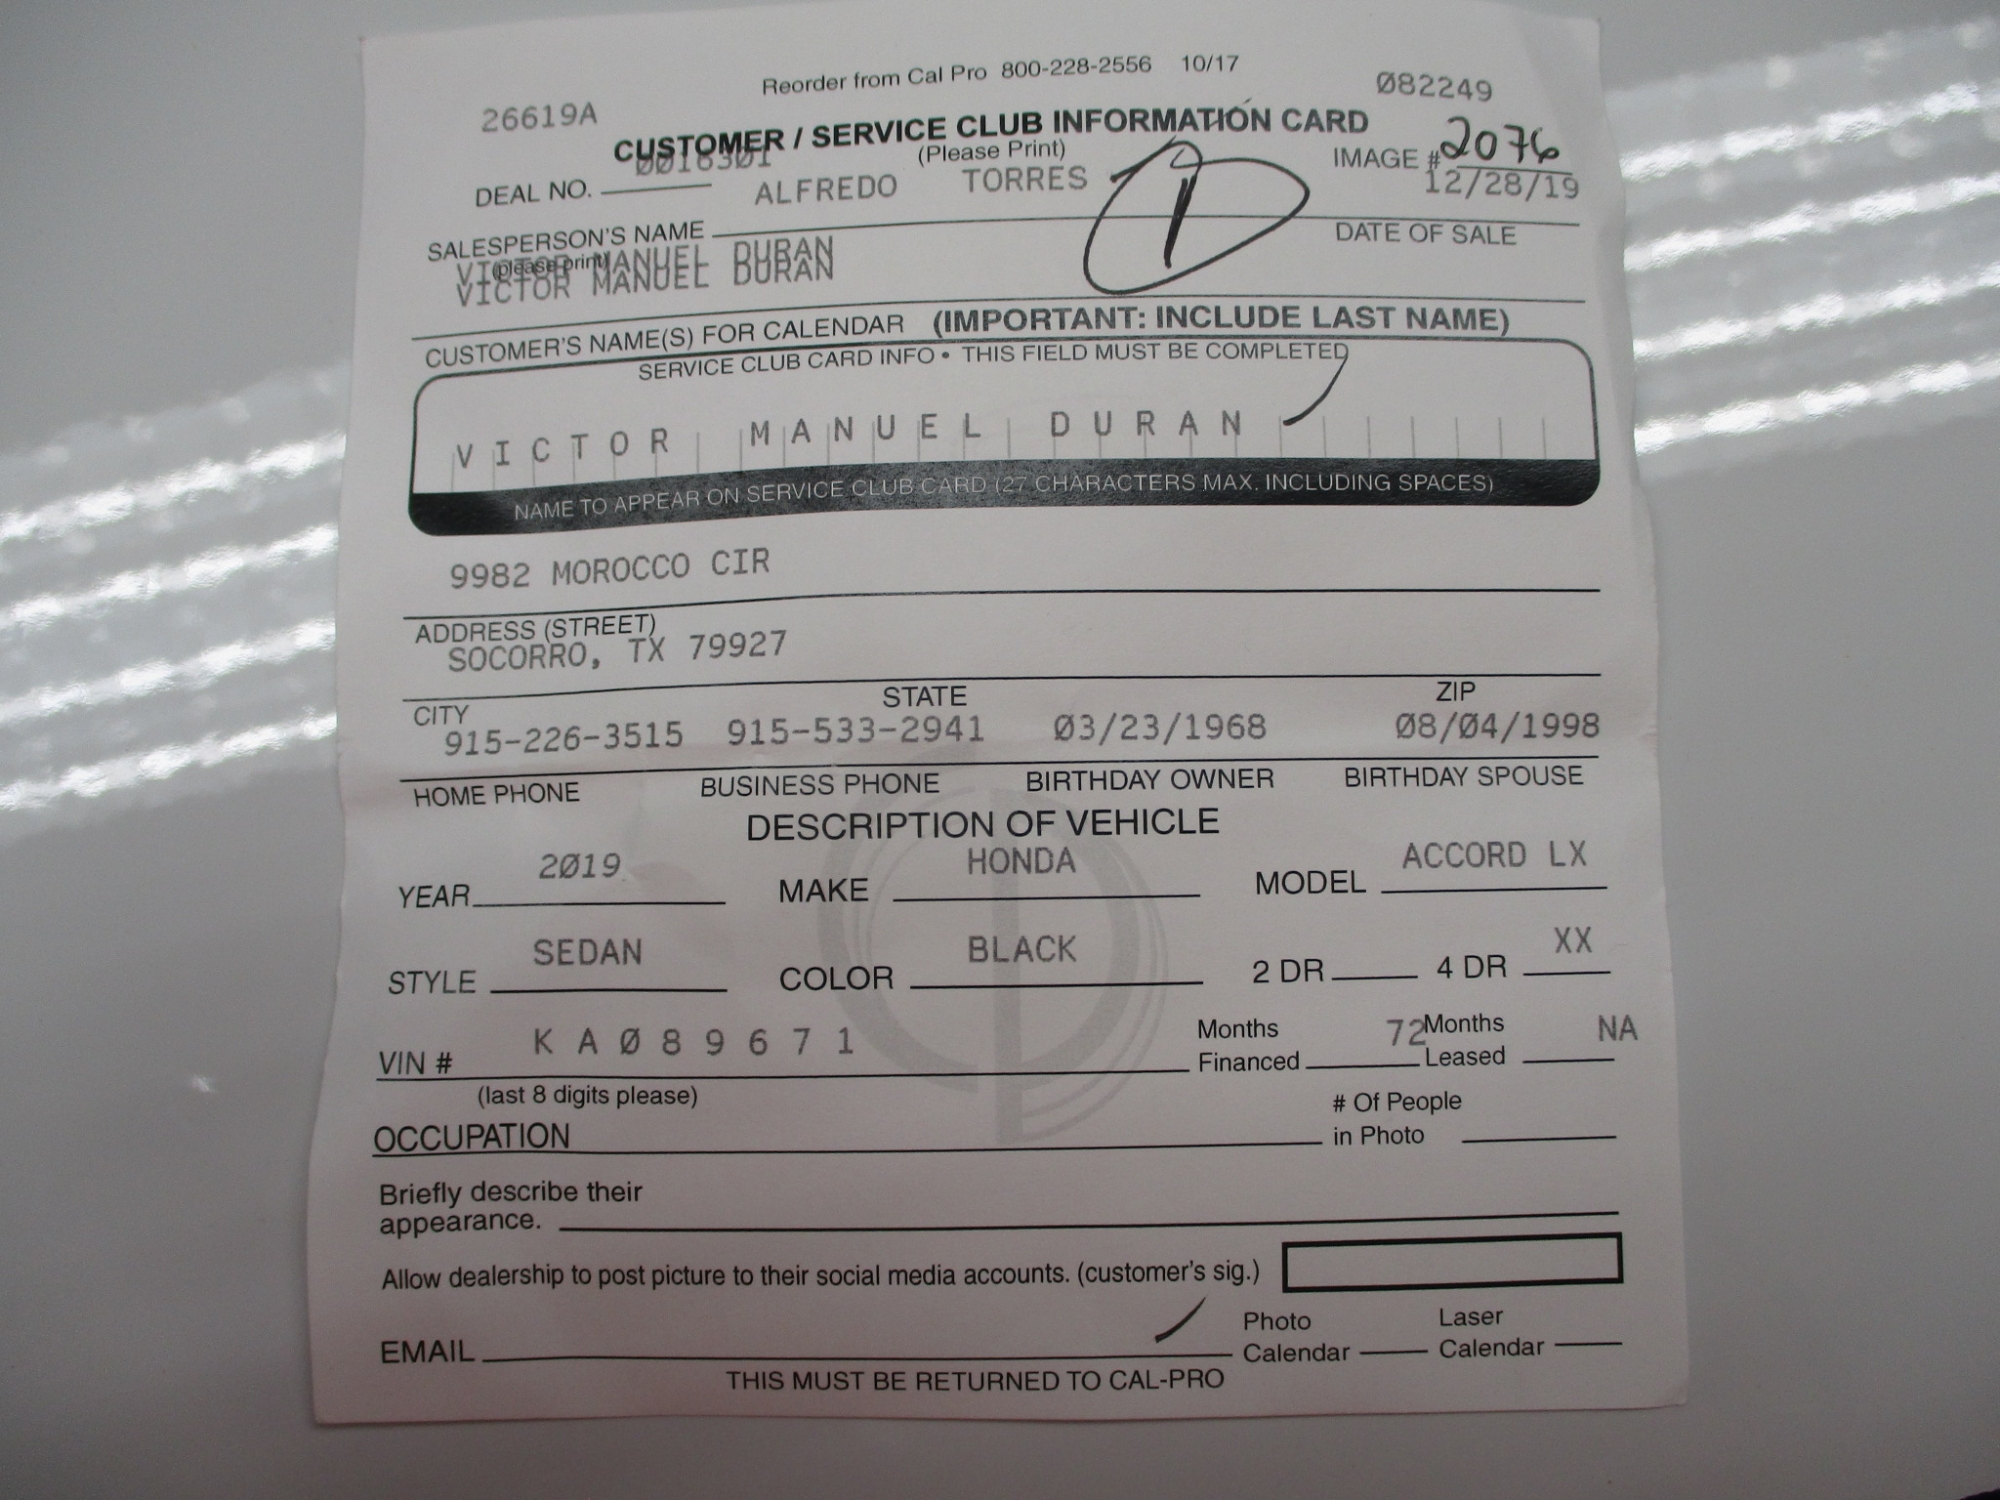 Reorder from Cal Pro 800-228-2556 10/17
26619A 082249
CUSTOMER / SERVICE CLUB INFORMATION CARD
(Please Print)
IMAGE # 2076
DEAL NO. 0018301
ALFREDO TORRES 12/28/19
1
SALESPERSON'S NAME DATE OF SALE
(please print)
VICTOR MANUEL DURAN
VICTOR MANUEL DURAN
CUSTOMER'S NAME(S) FOR CALENDAR (IMPORTANT: INCLUDE LAST NAME)
SERVICE CLUB CARD INFO • THIS FIELD MUST BE COMPLETED
VICTOR MANUEL DURAN
NAME TO APPEAR ON SERVICE CLUB CARD (27 CHARACTERS MAX. INCLUDING SPACES)
9982 MOROCCO CIR
ADDRESS (STREET)
SOCORRO, TX 79927
CITY STATE ZIP
915-226-3515 915-533-2941 03/23/1968 08/04/1998
HOME PHONE BUSINESS PHONE BIRTHDAY OWNER BIRTHDAY SPOUSE
DESCRIPTION OF VEHICLE
YEAR 2019 MAKE HONDA MODEL ACCORD LX
STYLE SEDAN COLOR BLACK 2 DR 4 DR XX
VIN # K A 0 8 9 6 7 1 Months Financed 72 Months Leased NA
(last 8 digits please)
OCCUPATION # Of People in Photo
Briefly describe their
appearance.
Allow dealership to post picture to their social media accounts. (customer's sig.)
EMAIL Photo Calendar Laser Calendar
THIS MUST BE RETURNED TO CAL-PRO